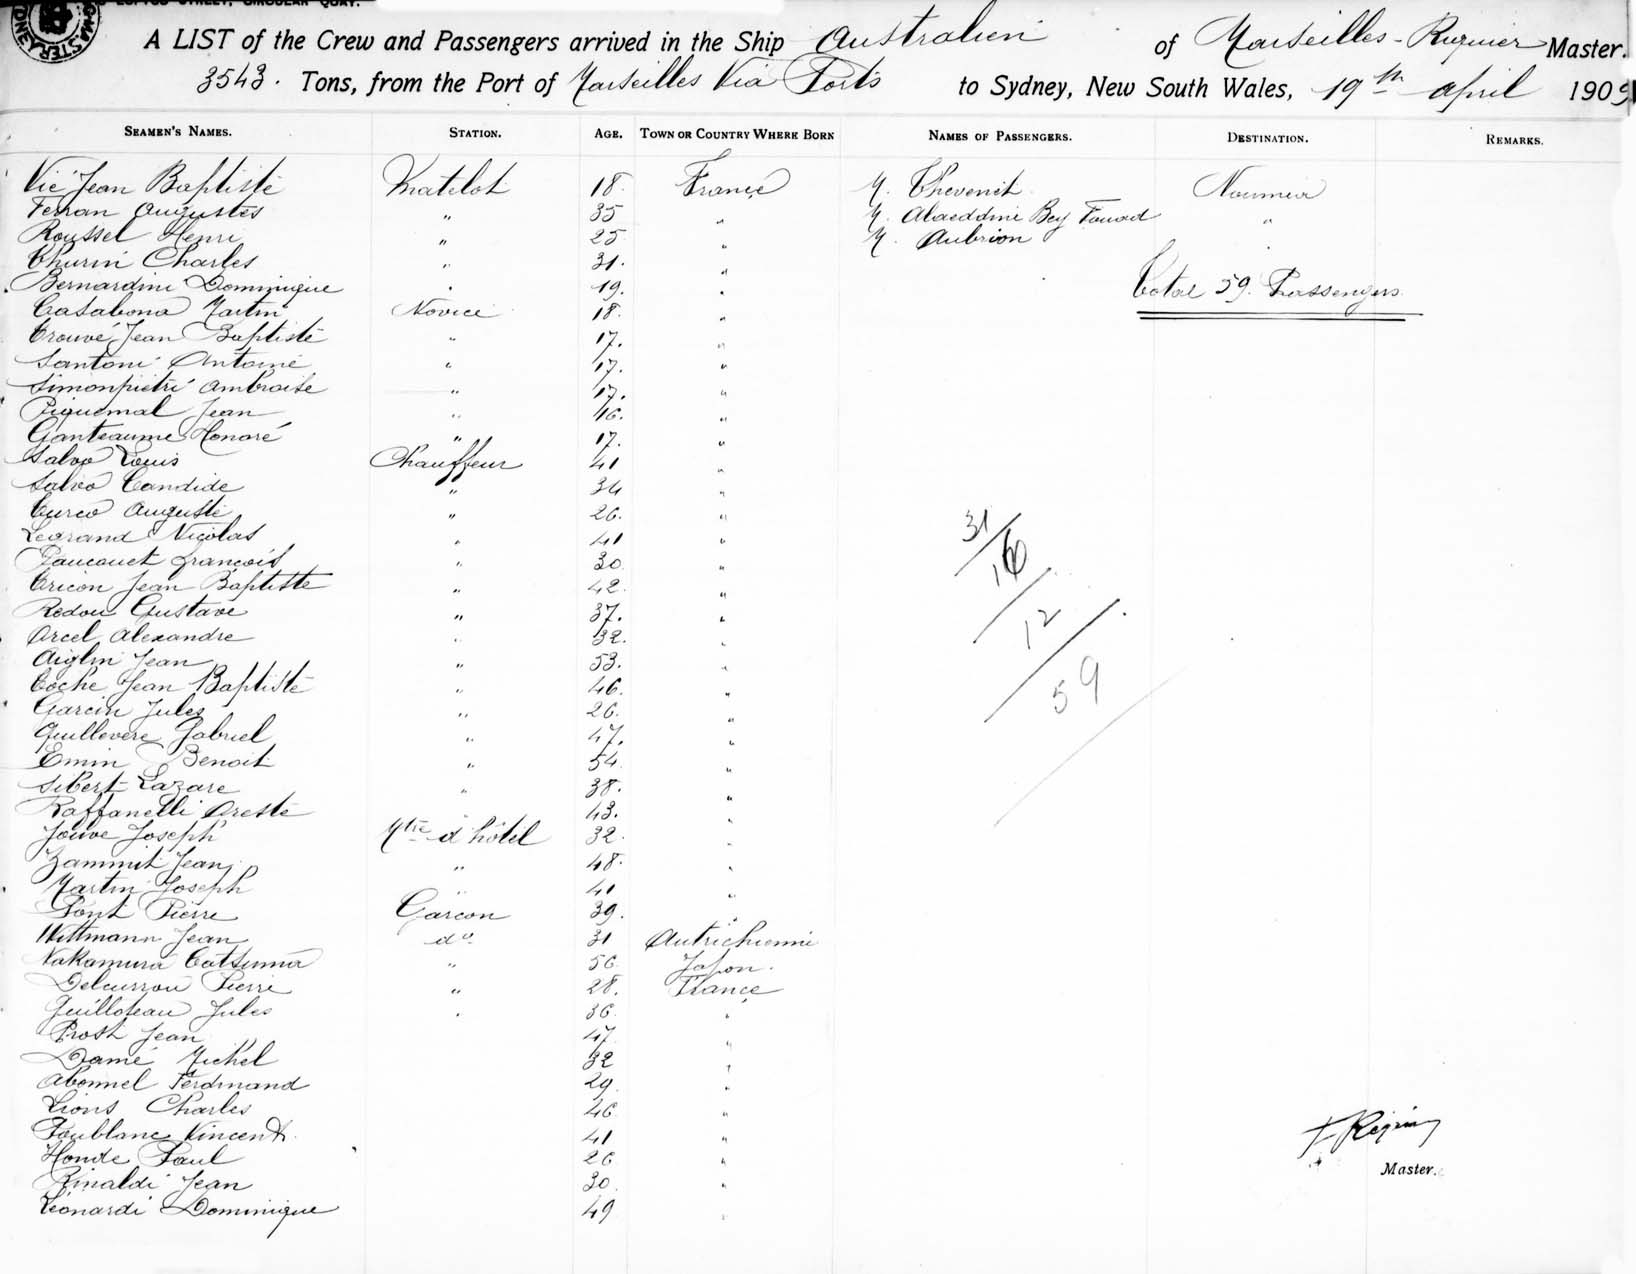 LOFTUS STREET, CIRCULAR QUAY.
A LIST of the Crew and Passengers arrived in the Ship Australien of Marseilles - Riquier Master.
3543. Tons, from the Port of Marseilles Via Ports to Sydney, New South Wales, 19th April 1909
SEAMEN'S NAMES. STATION. AGE. TOWN OR COUNTRY WHERE BORN NAMES OF PASSENGERS. DESTINATION. REMARKS.
Vié Jean Baptiste Matelot 18. France M. Thevenit Noumea
Ferran Augustes " 35 " M. Alaeddini Bey Fouad "
Roussel Henri " 25 " M. Aubrion "
Thurin Charles " 31. "
Bernardini Dominique " 19. "
Total 59. Passengers
Casabona Martin Novice 18. "
Trouvé Jean Baptiste " 17. "
Santoni Antoine " 17. "
Simonpietri Ambroise " 17. "
Piquemal Jean " 16. "
Ganteaume Honoré " 17. "
Salvo Louis Chauffeur 41 "
Salvo Candide " 34 "
Curco Auguste " 26. "
Legrand Nicolas " 41 "
31
Paucouet François " 30 "
16
Tricon Jean Baptiste " 42. "
Redou Gustave " 37. "
12
Arcel Alexandre " 32. "
Aiglin Jean " 53. "
Coche Jean Baptiste " 46. "
59
Garcin Jules " 26. "
Guillevere Gabriel " 47. "
Emin Benoit " 54 "
Sibert Lazare " 38. "
Raffanelli Oreste " 43. "
Jouve Joseph Mtre d'hôtel 32. "
Zammit Jean " 48. "
Martin Joseph " 41 "
Pont Pierre Garcon 39. "
Wittmann Jean do 31 Autrichienne
Nakamura Catsuma " 56 Japon.
Delcurrou Pierre " 28. France
Guilloteau Jules " 36. "
Prost Jean 47 "
Damé Michel 32 "
Abonnel Ferdinand 29. "
Lions Charles 46. "
Poublanc Vincent 41 "
Honde Paul 26 "
Master.
Rinaldi Jean 30. "
Léonardi Dominique 49 "